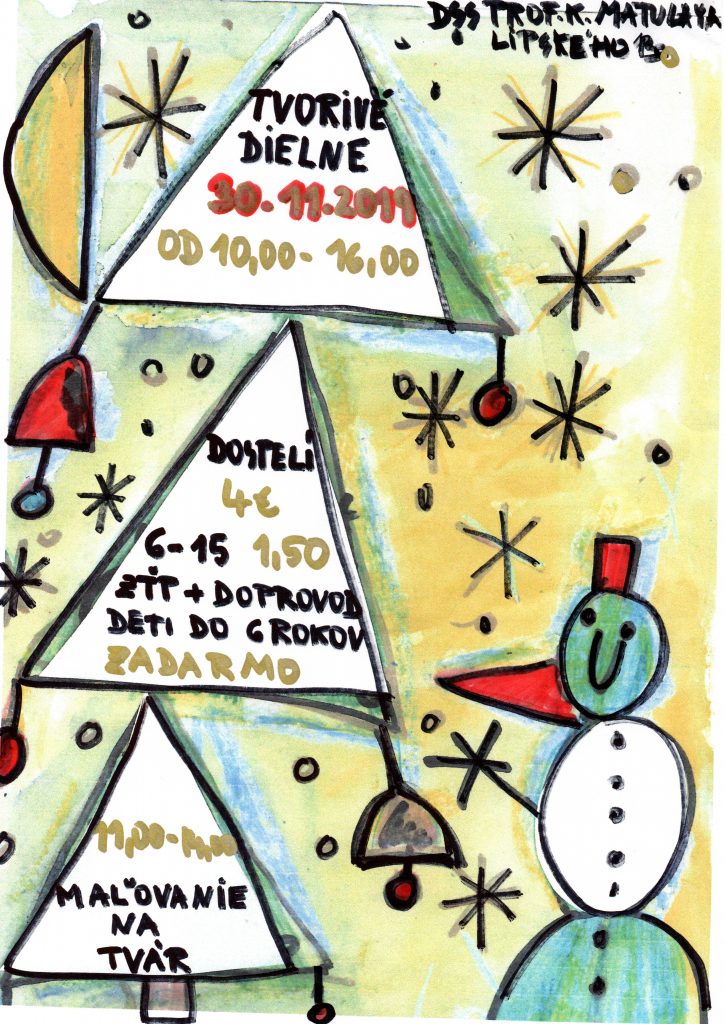 DSS PROF. K. MATULAYA
LIPSKÉHO 13
TVORIVÉ
DIELNE
30.11.2019
OD 10,00 - 16,00
DOSPELÍ
4€
6-15 1,50
ZŤP + DOPROVOD
DETI DO 6 ROKOV
ZADARMO
11,00-14,00
MAĽOVANIE
NA
TVÁR